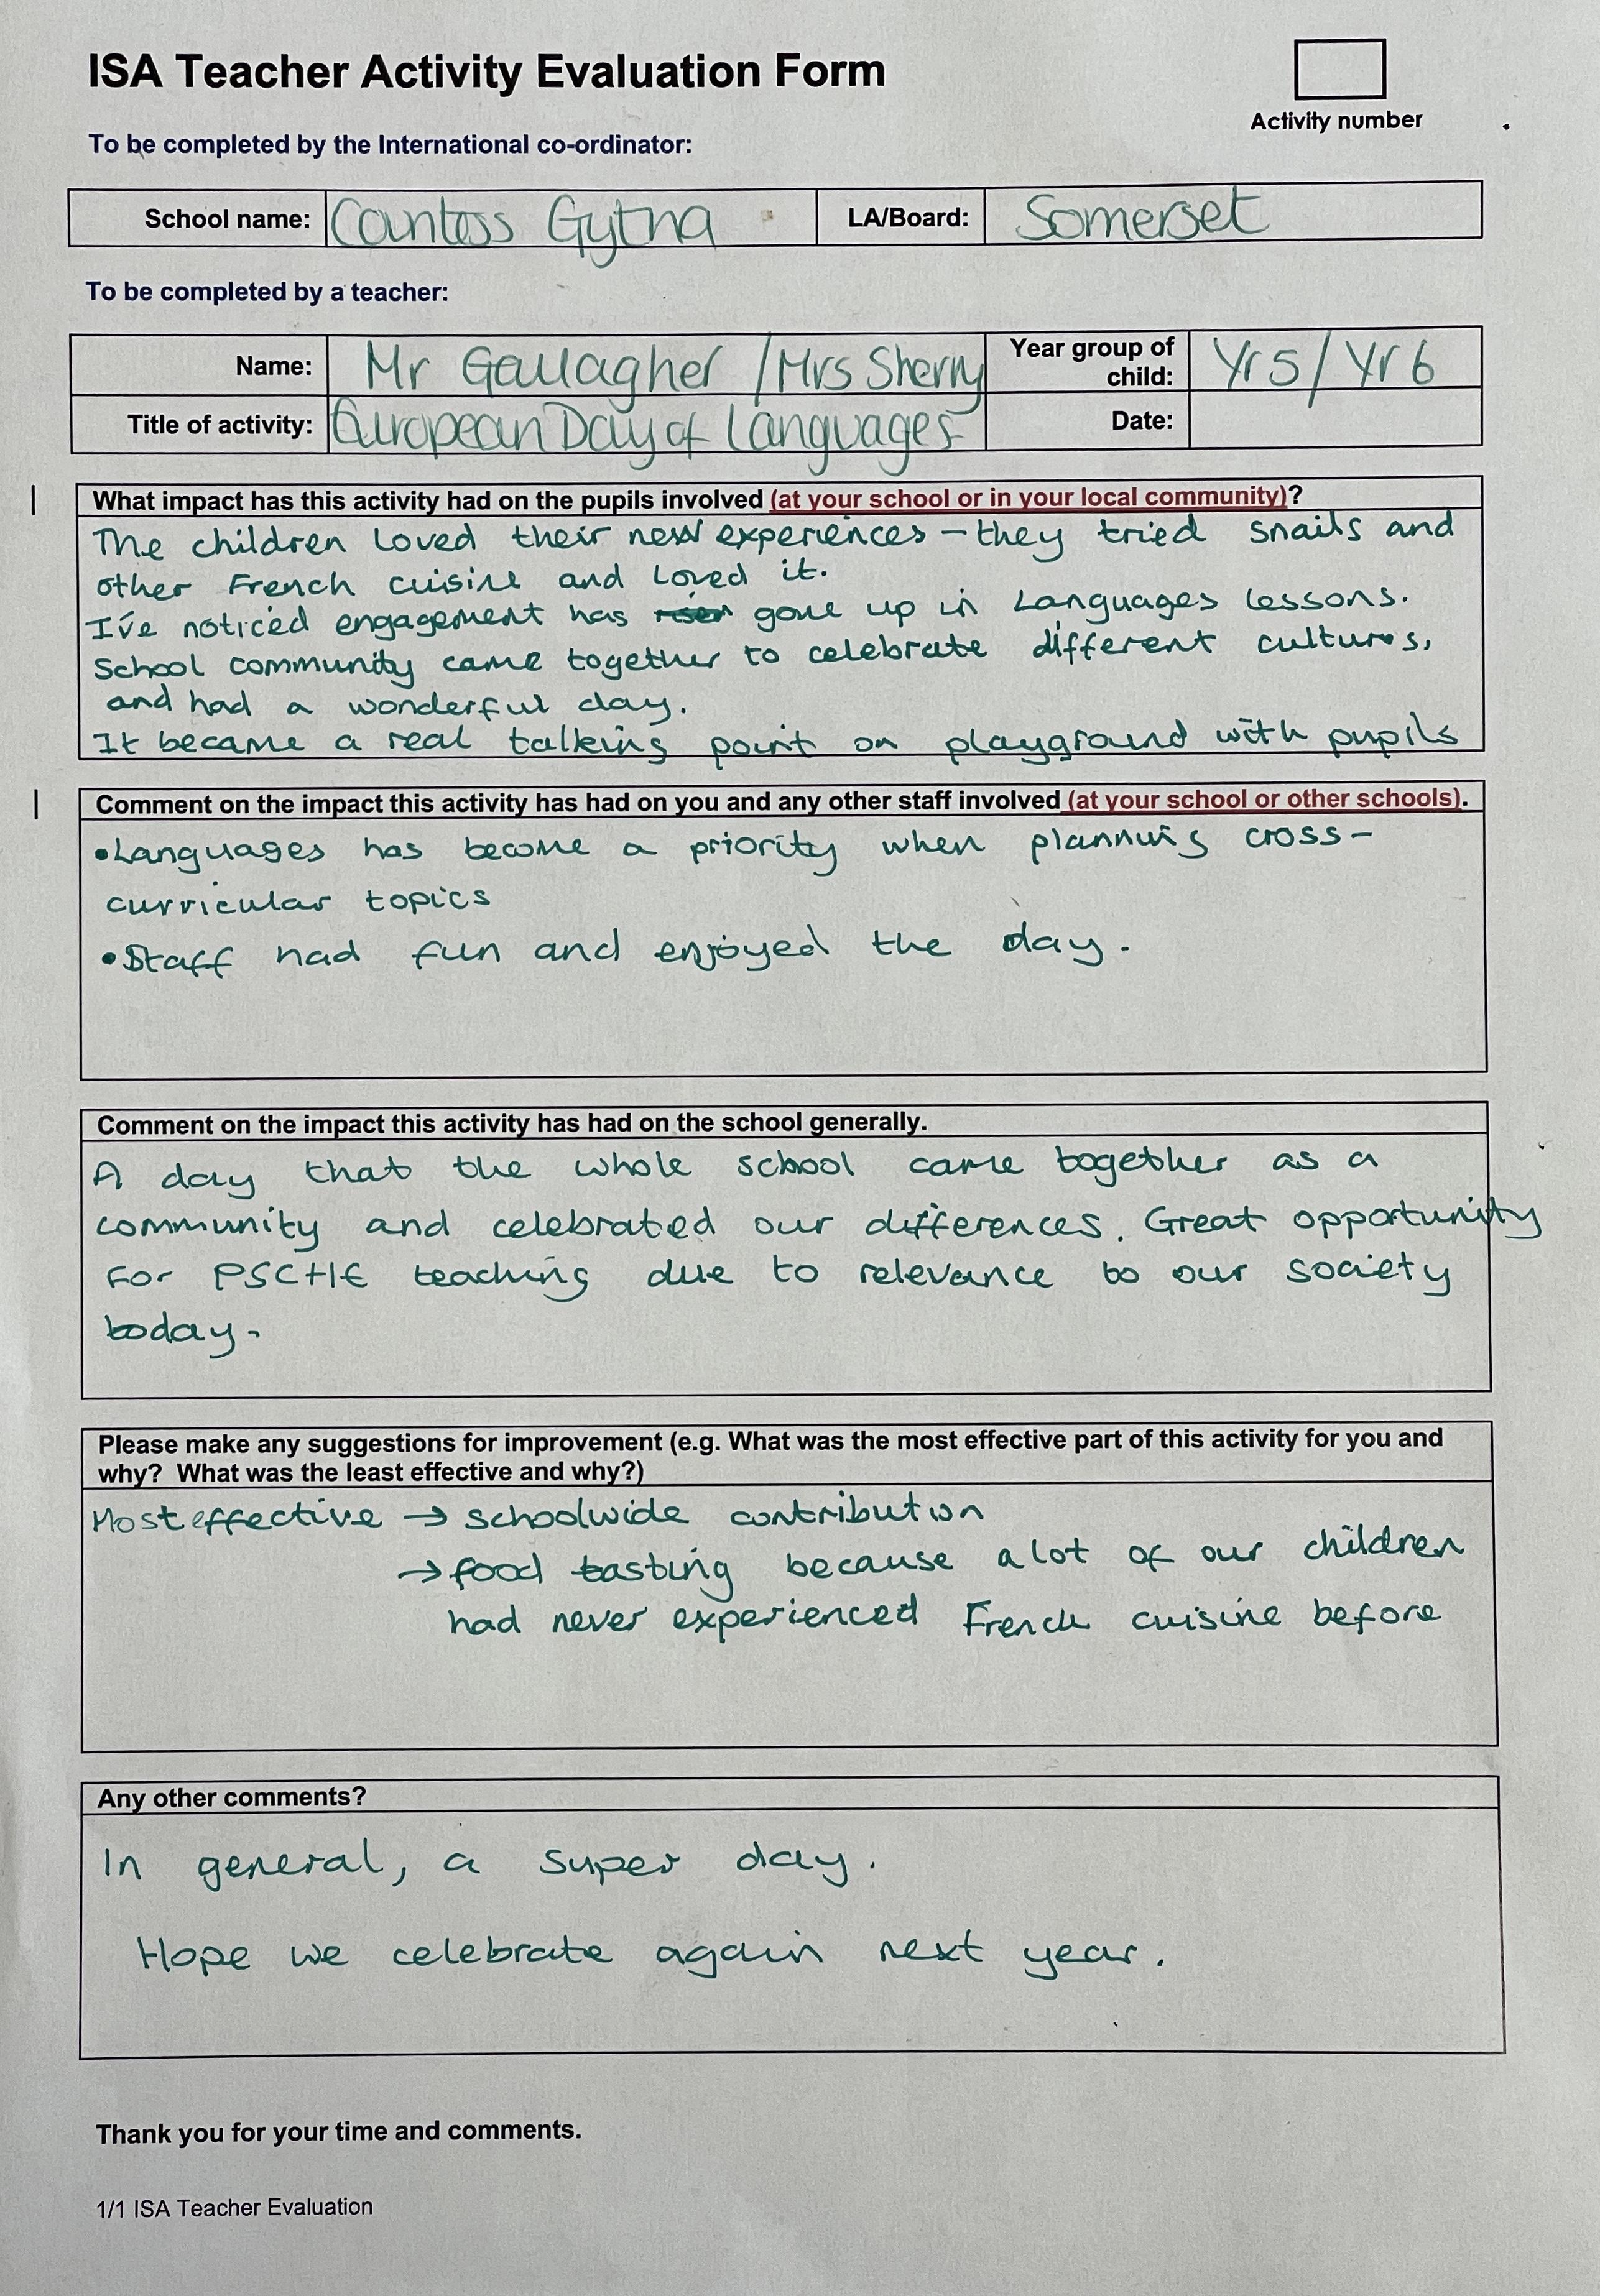 ISA Teacher Activity Evaluation Form
Activity number
To be completed by the International co-ordinator:
School name: Countess Gytha LA/Board: Somerset
To be completed by a teacher:
Name: Mr Gallagher / Mrs Sherry Year group of child: Yr 5 / Yr 6
Title of activity: European Day of Languages Date:
What impact has this activity had on the pupils involved (at your school or in your local community)?
The children loved their new experiences – they tried snails and
other French cuisine and loved it.
I've noticed engagement has gone up in Languages lessons.
School community came together to celebrate different cultures,
and had a wonderful day.
It became a real talking point on playground with pupils
Comment on the impact this activity has had on you and any other staff involved (at your school or other schools).
• Languages has become a priority when planning cross-
curricular topics
• Staff had fun and enjoyed the day.
Comment on the impact this activity has had on the school generally.
A day that the whole school came together as a
community and celebrated our differences. Great opportunity
for PSCHE teaching due to relevance to our society
today.
Please make any suggestions for improvement (e.g. What was the most effective part of this activity for you and
why? What was the least effective and why?)
Most effective → schoolwide contribution
→ food tasting because a lot of our children
had never experienced French cuisine before
Any other comments?
In general, a super day.
Hope we celebrate again next year.
Thank you for your time and comments.
1/1 ISA Teacher Evaluation